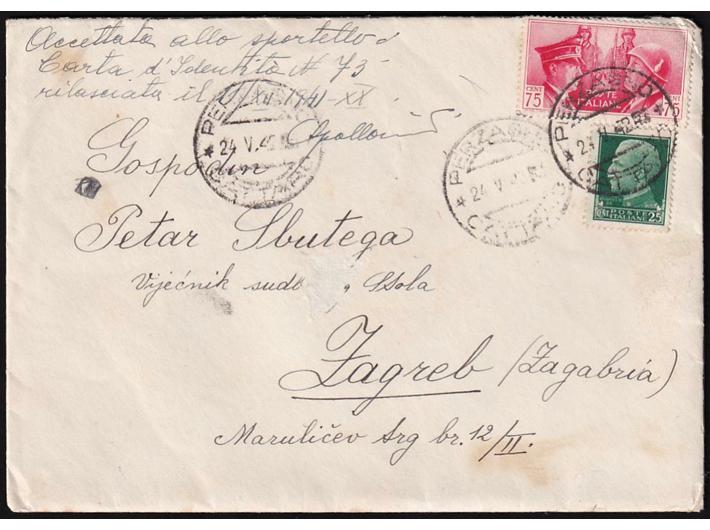 Accettata allo sportello
Carta d'Identità N 73
rilasciata il 1941-XX
Gospodin
Petar Sbutega
Vijećnik sudb Stola
Zagreb (Zagabria)
Marulićev Srg br. 12/II.
CENT 75
POSTE ITALIANE
75
POSTE ITALIANE
25
PERZAGNO
24 V. 42
CATTARO
PERZAGNO
24 V
CATTARO
PERZAGNO
CATTARO